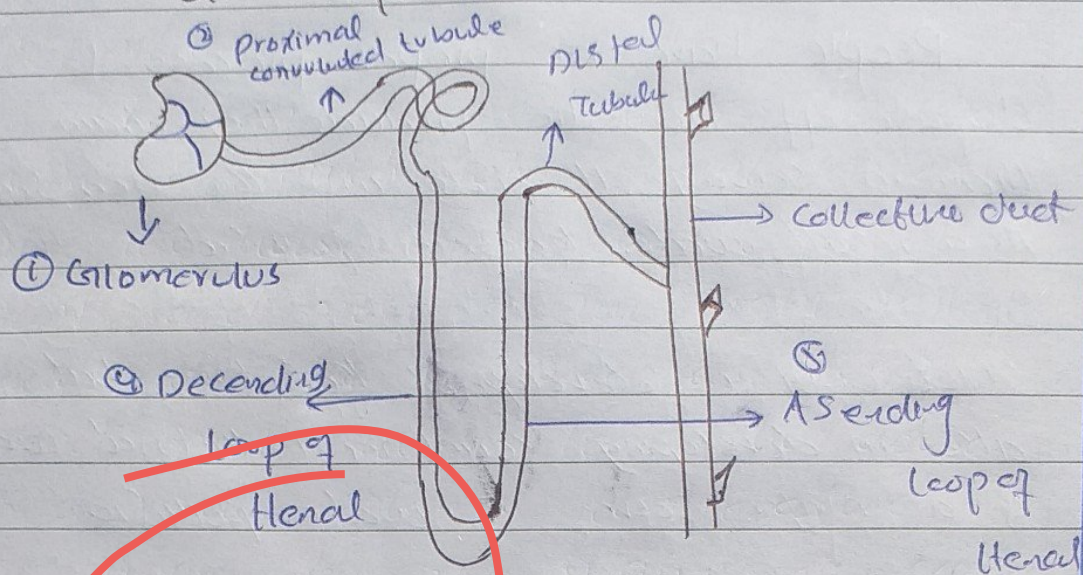 ② Proximal
convuluded tubule
Distel
Tubule
→ Collecture duct
① Glomerulus
④ Decending
loop of
Henal
⑤
ASending
Loop of
Henal